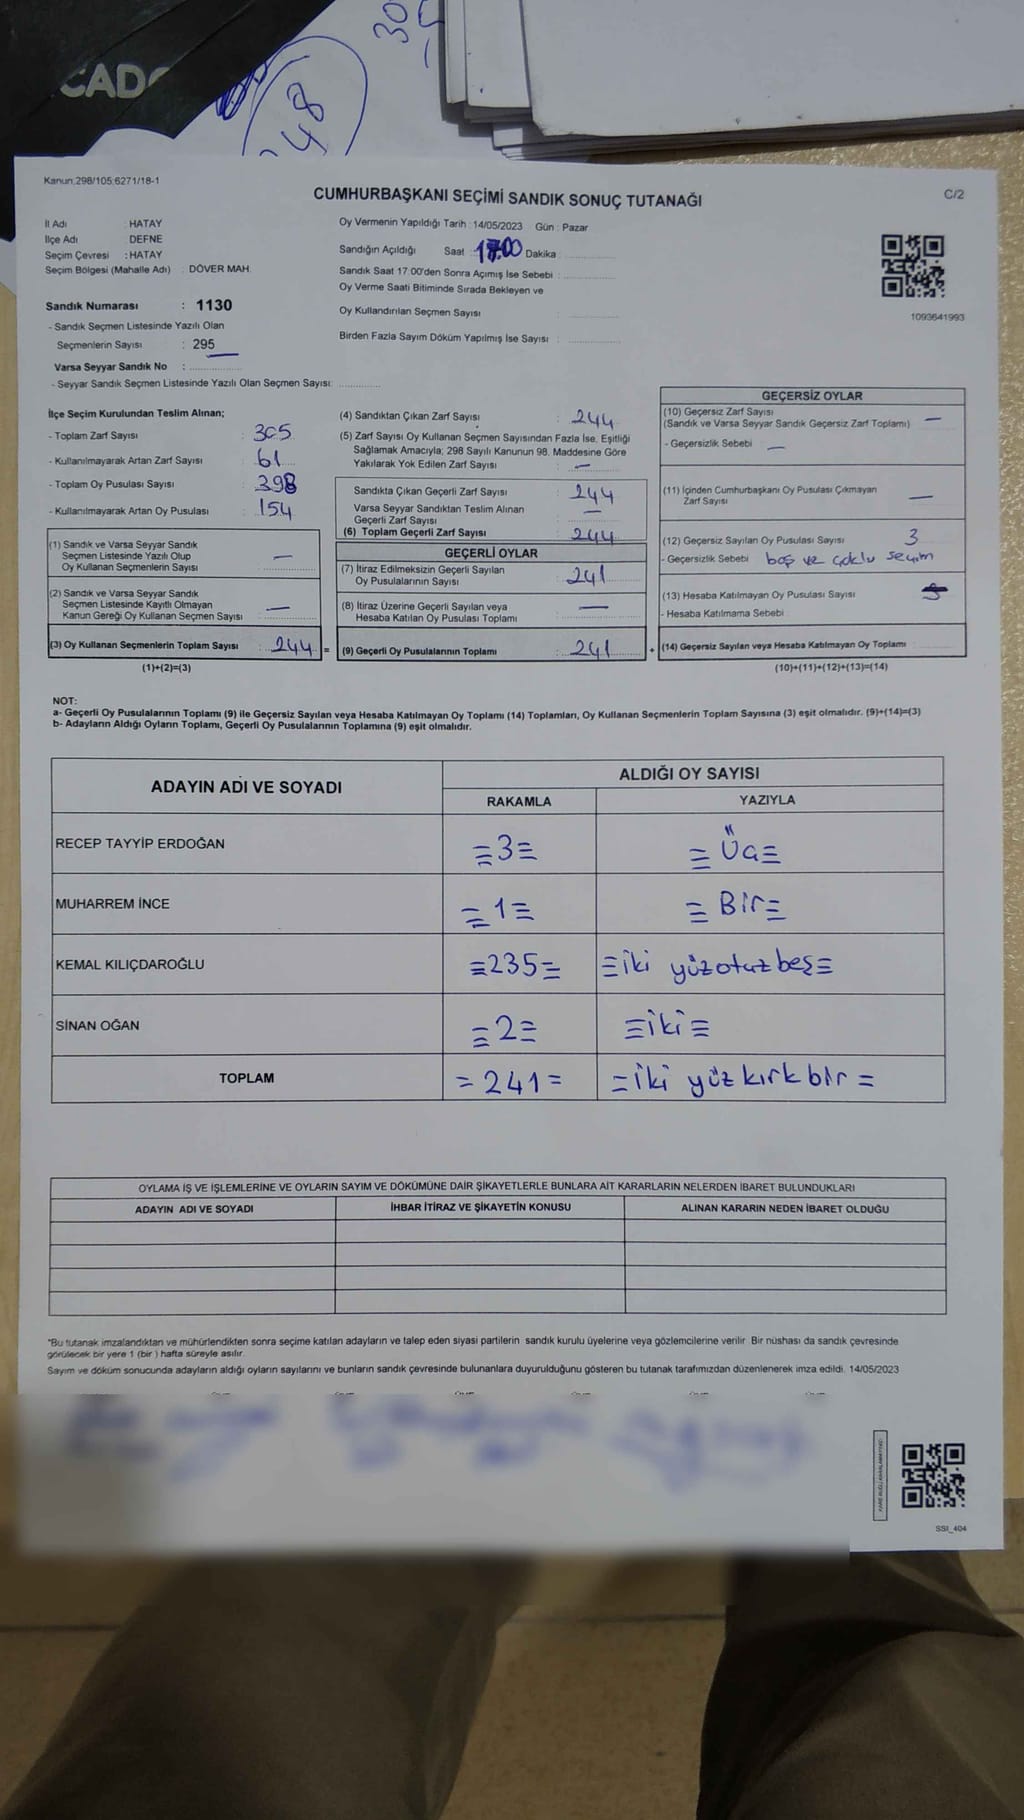 CADO
30
48
Kanun:298/105;6271/18-1
CUMHURBAŞKANI SEÇİMİ SANDIK SONUÇ TUTANAĞI
C/2
İl Adı : HATAY
İlçe Adı : DEFNE
Seçim Çevresi : HATAY
Seçim Bölgesi (Mahalle Adı) : DÖVER MAH.
Sandık Numarası : 1130
- Sandık Seçmen Listesinde Yazılı Olan
Seçmenlerin Sayısı : 295
Varsa Seyyar Sandık No : ..............
- Seyyar Sandık Seçmen Listesinde Yazılı Olan Seçmen Sayısı: ..............
Oy Vermenin Yapıldığı Tarih : 14/05/2023 Gün : Pazar
Sandığın Açıldığı Saat : 17.00 Dakika : ..............
Sandık Saat 17:00'den Sonra Açımış İse Sebebi : ..............
Oy Verme Saati Bitiminde Sırada Bekleyen ve
Oy Kullandırılan Seçmen Sayısı : ..............
Birden Fazla Sayım Döküm Yapılmış İse Sayısı : ..............
1093641993
İlçe Seçim Kurulundan Teslim Alınan;
- Toplam Zarf Sayısı : 305
- Kullanılmayarak Artan Zarf Sayısı : 61
- Toplam Oy Pusulası Sayısı : 398
- Kullanılmayarak Artan Oy Pusulası : 154
(1) Sandık ve Varsa Seyyar Sandık
Seçmen Listesinde Yazılı Olup
Oy Kullanan Seçmenlerin Sayısı : —
(2) Sandık ve Varsa Seyyar Sandık
Seçmen Listesinde Kayıtlı Olmayan
Kanun Gereği Oy Kullanan Seçmen Sayısı : —
(3) Oy Kullanan Seçmenlerin Toplam Sayısı : 244 =
(1)+(2)=(3)
(4) Sandıktan Çıkan Zarf Sayısı : 244
(5) Zarf Sayısı Oy Kullanan Seçmen Sayısından Fazla İse, Eşitliği
Sağlamak Amacıyla; 298 Sayılı Kanunun 98. Maddesine Göre
Yakılarak Yok Edilen Zarf Sayısı : —
Sandıkta Çıkan Geçerli Zarf Sayısı : 244
Varsa Seyyar Sandıktan Teslim Alınan
Geçerli Zarf Sayısı : —
(6) Toplam Geçerli Zarf Sayısı : 244
GEÇERLİ OYLAR
(7) İtiraz Edilmeksizin Geçerli Sayılan
Oy Pusulalarının Sayısı : 241
(8) İtiraz Üzerine Geçerli Sayılan veya
Hesaba Katılan Oy Pusulası Toplamı : —
(9) Geçerli Oy Pusulalarının Toplamı : 241 +
GEÇERSİZ OYLAR
(10) Geçersiz Zarf Sayısı
(Sandık ve Varsa Seyyar Sandık Geçersiz Zarf Toplamı) : —
- Geçersizlik Sebebi : —
(11) İçinden Cumhurbaşkanı Oy Pusulası Çıkmayan
Zarf Sayısı : —
(12) Geçersiz Sayılan Oy Pusulası Sayısı : 3
- Geçersizlik Sebebi : boş ve çoklu seçim
(13) Hesaba Katılmayan Oy Pusulası Sayısı :
- Hesaba Katılmama Sebebi :
(14) Geçersiz Sayılan veya Hesaba Katılmayan Oy Toplamı : ..............
(10)+(11)+(12)+(13)=(14)
NOT:
a- Geçerli Oy Pusulalarının Toplamı (9) ile Geçersiz Sayılan veya Hesaba Katılmayan Oy Toplamı (14) Toplamları, Oy Kullanan Seçmenlerin Toplam Sayısına (3) eşit olmalıdır. (9)+(14)=(3)
b- Adayların Aldığı Oyların Toplamı, Geçerli Oy Pusulalarının Toplamına (9) eşit olmalıdır.
ADAYIN ADI VE SOYADI
ALDIĞI OY SAYISI
RAKAMLA YAZIYLA
RECEP TAYYİP ERDOĞAN ≡3≡ ≡Üç≡
MUHARREM İNCE ≡1≡ ≡Bir≡
KEMAL KILIÇDAROĞLU ≡235≡ ≡iki yüzotuzbeş≡
SİNAN OĞAN ≡2≡ ≡iki≡
TOPLAM =241= =iki yüzkırkbir=
OYLAMA İŞ VE İŞLEMLERİNE VE OYLARIN SAYIM VE DÖKÜMÜNE DAİR ŞİKAYETLERLE BUNLARA AİT KARARLARIN NELERDEN İBARET BULUNDUKLARI
ADAYIN ADI VE SOYADI İHBAR İTİRAZ VE ŞİKAYETİN KONUSU ALINAN KARARIN NEDEN İBARET OLDUĞU
*Bu tutanak imzalandıktan ve mühürlendikten sonra seçime katılan adayların ve talep eden siyasi partilerin sandık kurulu üyelerine veya gözlemcilerine verilir Bir nüshası da sandık çevresinde
görülecek bir yere 1 (bir) hafta süreyle asılır.
Sayım ve döküm sonucunda adayların aldığı oyların sayılarını ve bunların sandık çevresinde bulunanlara duyurulduğunu gösteren bu tutanak tarafımızdan düzenlenerek imza edildi. 14/05/2023
SSI_404